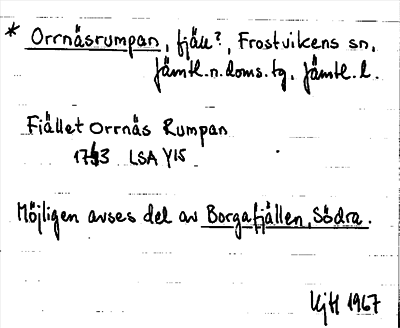 * Orrnäsrumpan, fjäll?, Frostvikens sn,
Jämtl.n.doms.tg, Jämtl.l.
Fiället Orrnäs Rumpan
LSA Y15
Möjligen avses del av Borgafjällen, Södra.
1967